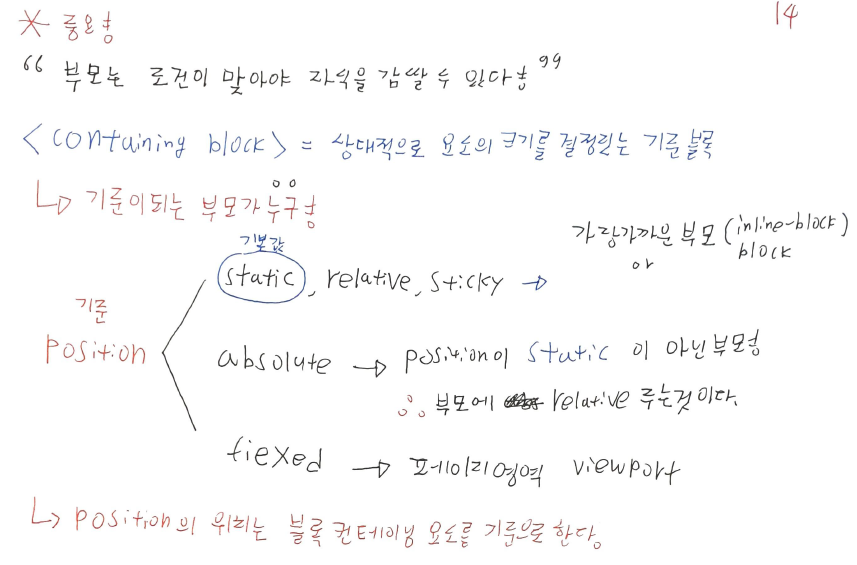 14
* 중요함
" 부모는 조건이 맞아야 자식을 감쌀 수 있다함 "
<containing block> = 상대적으로 요소의 크기를 결정짓는 기준 블록
↳ 기준이되는 부모가 누구함
기본값
static, relative, sticky → 가장가까운 부모 (inline-block)
or block
기준
position
absolute → position이 static 이 아닌부모임
∴ 부모에 relative 주는것이다.
fiexed → 페이지영역 viewport
↳ position의 위치는 블록 컨테이닝 요소를 기준으로 한다.